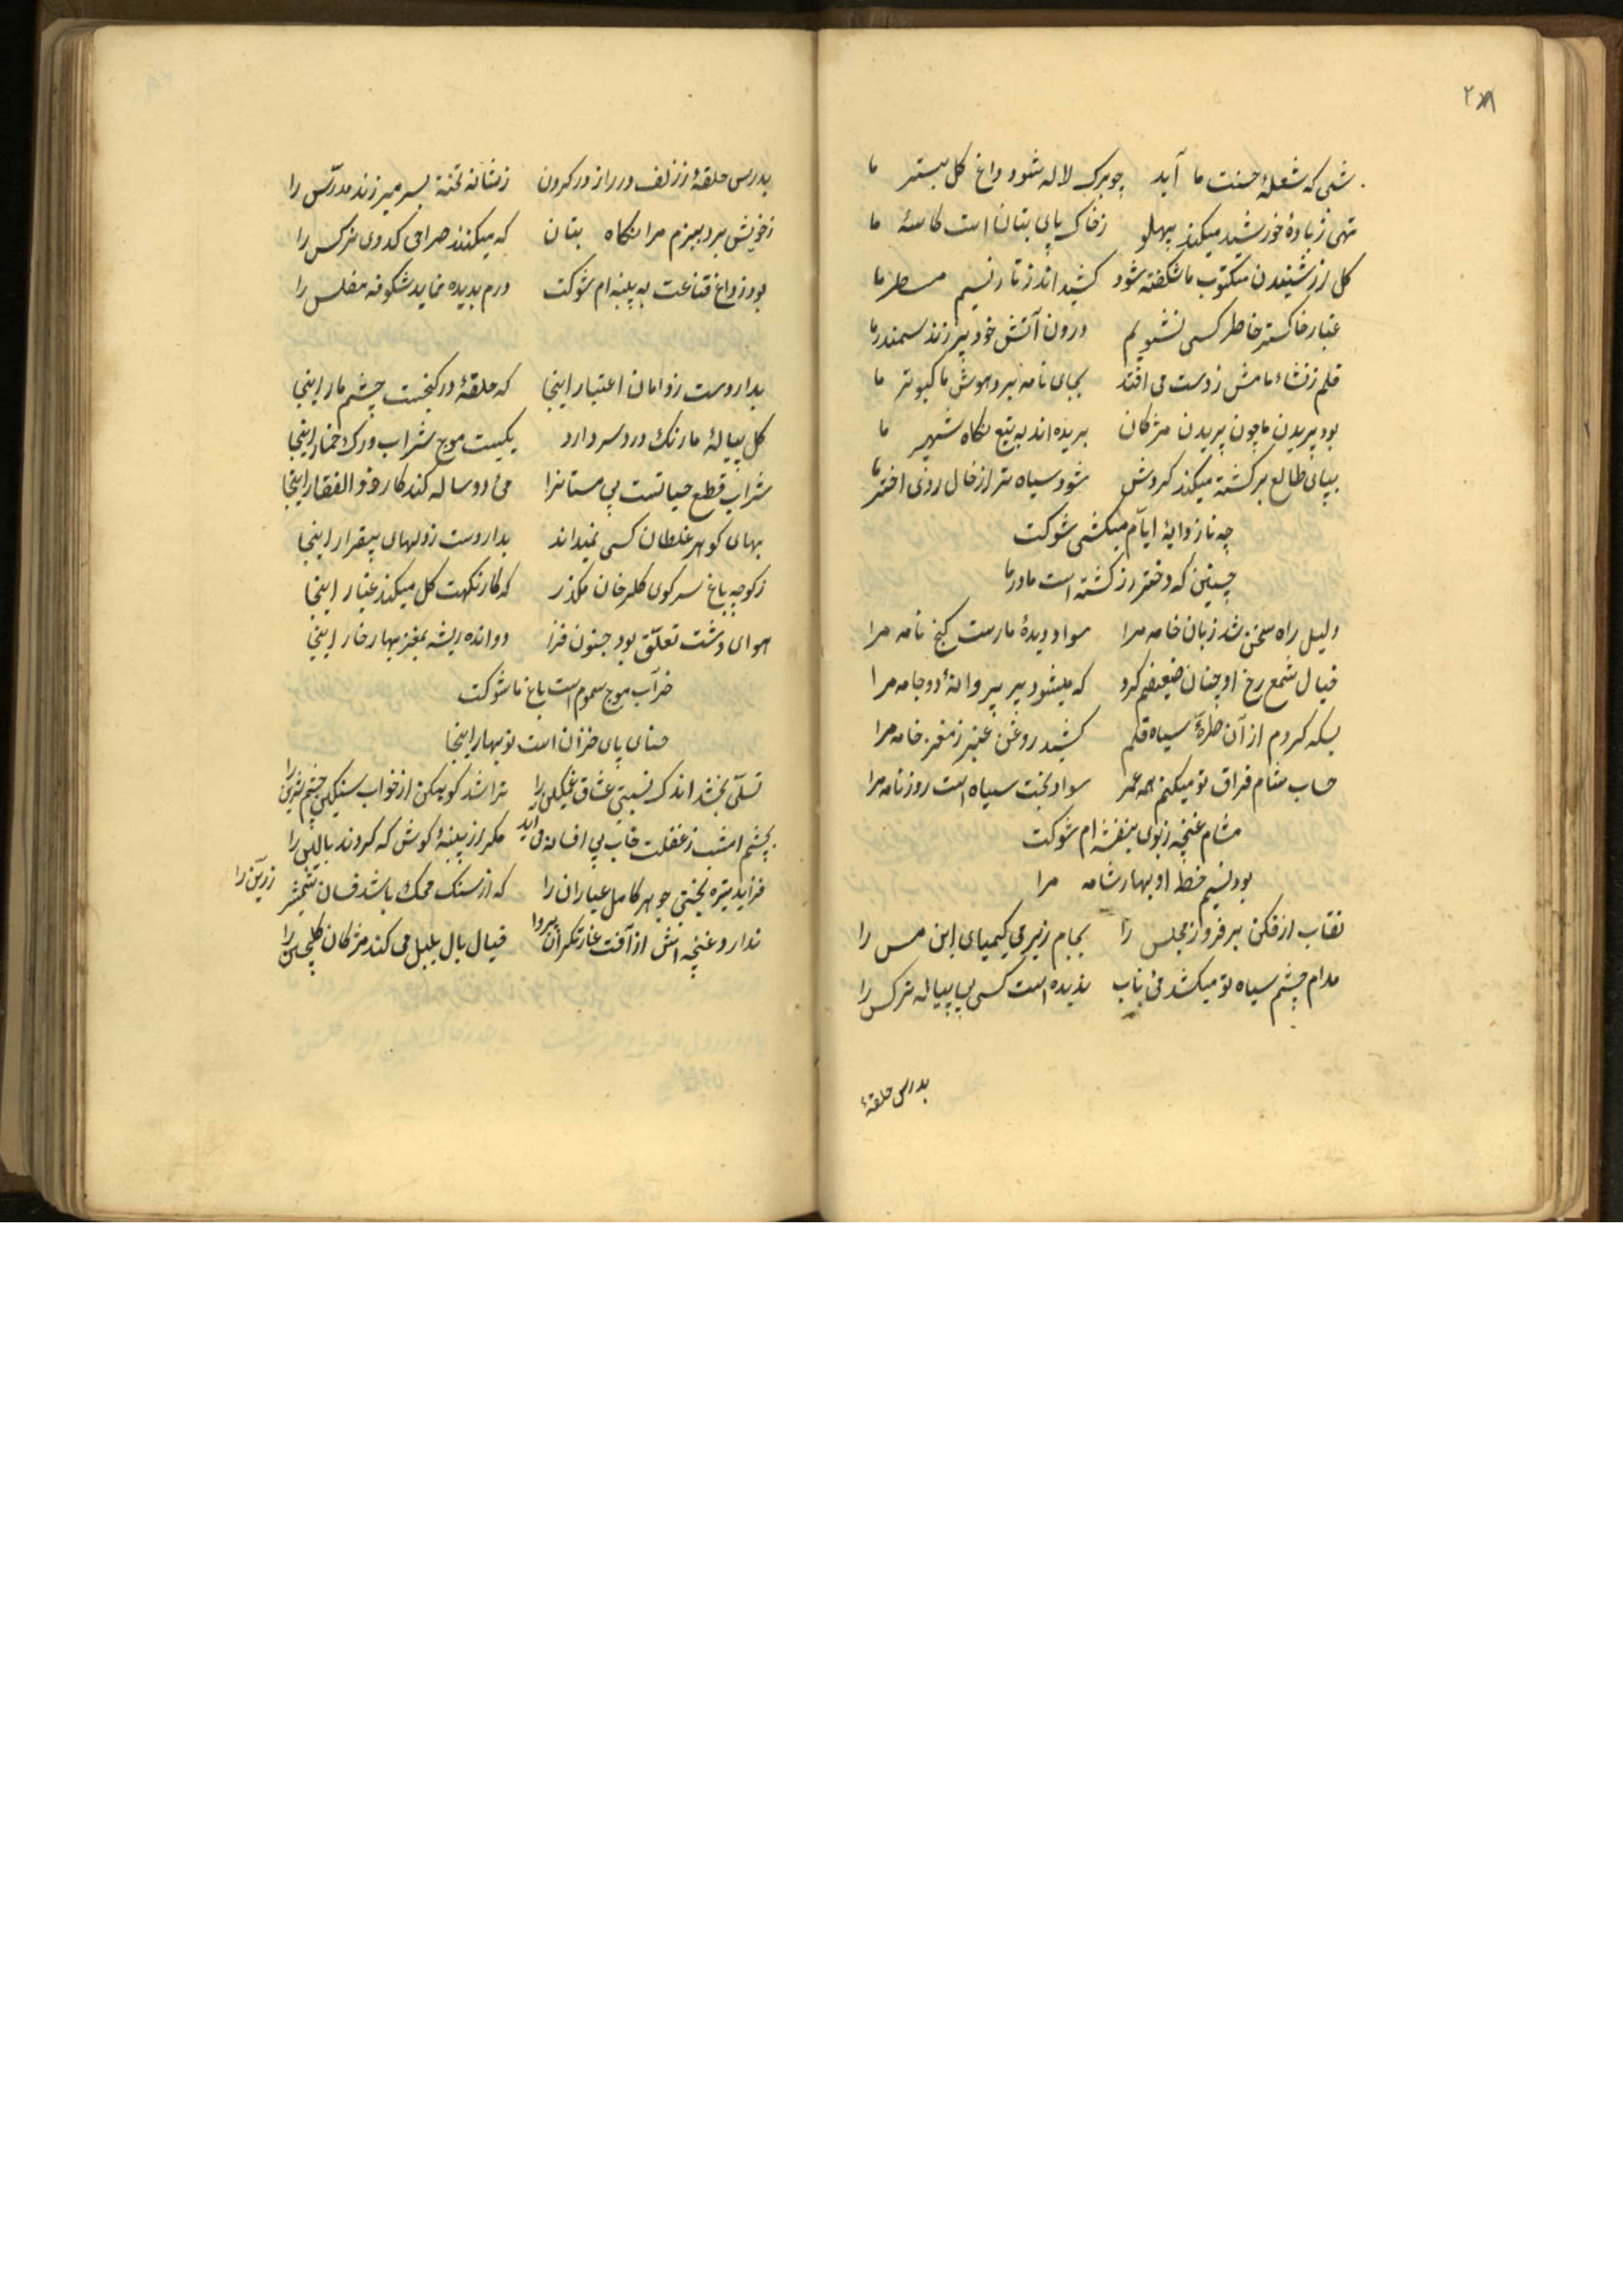 ۲۸
شبی که شعلهٔ حسنت ما آید چو برک لاله شود داغ کل بستر ما
تهی ز بادهٔ خورشید میکند پهلو ز خاک پای بتان است کاسهٔ ما
کل از شنیدن مکتوب ما شکفته شود کشیداند ز تار نسیم مسطر ما
غبار خاکستر خاطر کسی نشویم درون آتش خود پر زند سمندر ما
قلم ز نشاء ما مش ز دست می افتد بجای نامه برد هوش ما کبوتر ما
بود پریدن ما چون پریدن مژکان بریده اند به تیغ نکاه شهپر ما
بپای طالع برکشته میکند کردش شود سیاه تر از خال روی اختر ما
چه ناز دایهٔ ایّام میکشی شوکت
چنین که دختر رز کشته است مادر ما
دلیل راه سخن شد زبان خامه مرا سواد دیدهٔ مارست کنج نامه مرا
خیال شمع رخ او چنان ضعیفم کرد که میشود پر پروانهٔ دو جامه مرا
بسکه کردم از آن طرّهٔ سیاه قلم کشید روغن عنبر ز مغز خامه مرا
حساب شام فراق تو میکنم همه عمر سواد بخت سیاه است روزنامه مرا
مشام غنچه ز بوی بنفشه ام شوکت
بود نسیم خط او بهار شامه مرا
نقاب از فکن بر فروز مجلس را بجام زیر می کیمیای این مس را
مدام چشم سیاه تو میکشد می ناب ندیده است کسی بی پیاله نرکس را
بدرس حلقهٔ
بدرس حلقهٔ زلف دراز در کردن ز شانه تخته بسر میزند مدرّس را
ز خویش برد ببزم مرا نکاه بتان که میکنند صراحی کدوی نرکس را
بود ز داغ قناعت به پنبه ام شوکت درم بدیده نماید شکوفه مفلس را
بدار دست ز دامان اعتبار اینجا که حلقهٔ در کنجست چشم مار اینجا
کل پیالهٔ ما رنک درد سر دارد یکیست موج شراب و رک خمار اینجا
شراب قطع حیاتست بی مستانرا می دو ساله کند کار ذو الفقار اینجا
بهای کوهر غلطان کسی نمیداند بدار دست ز دلهای بیقرار اینجا
ز کوچه باغ سر کوی کلرخان مکذر که کار نکهت کل میکند غبار اینجا
هوای دشت تعلّق بود جنون فزا دوانده ریشه بمغز بهار خار اینجا
خراب موج سموم است باغ ما شوکت
حنای پای خزان است نو بهار اینجا
تسلّی بخشد اندک نسبتی عشّاق غمکین را تراشد کوهکن از خواب سنکین چشم شیرین را
بچشم امشب ز غفلت خاب بی افسانه می آید مکر از پنبهٔ کوش که کردند بالین را
فزاید تیره بختی جوهر کامل عیاران را که از سنک محک باشد فسان شمشیر زرّین را
ندارد غنچه اش از آفت غارتکران پروا خیال بال بلبل می کند مژکان کلچین را